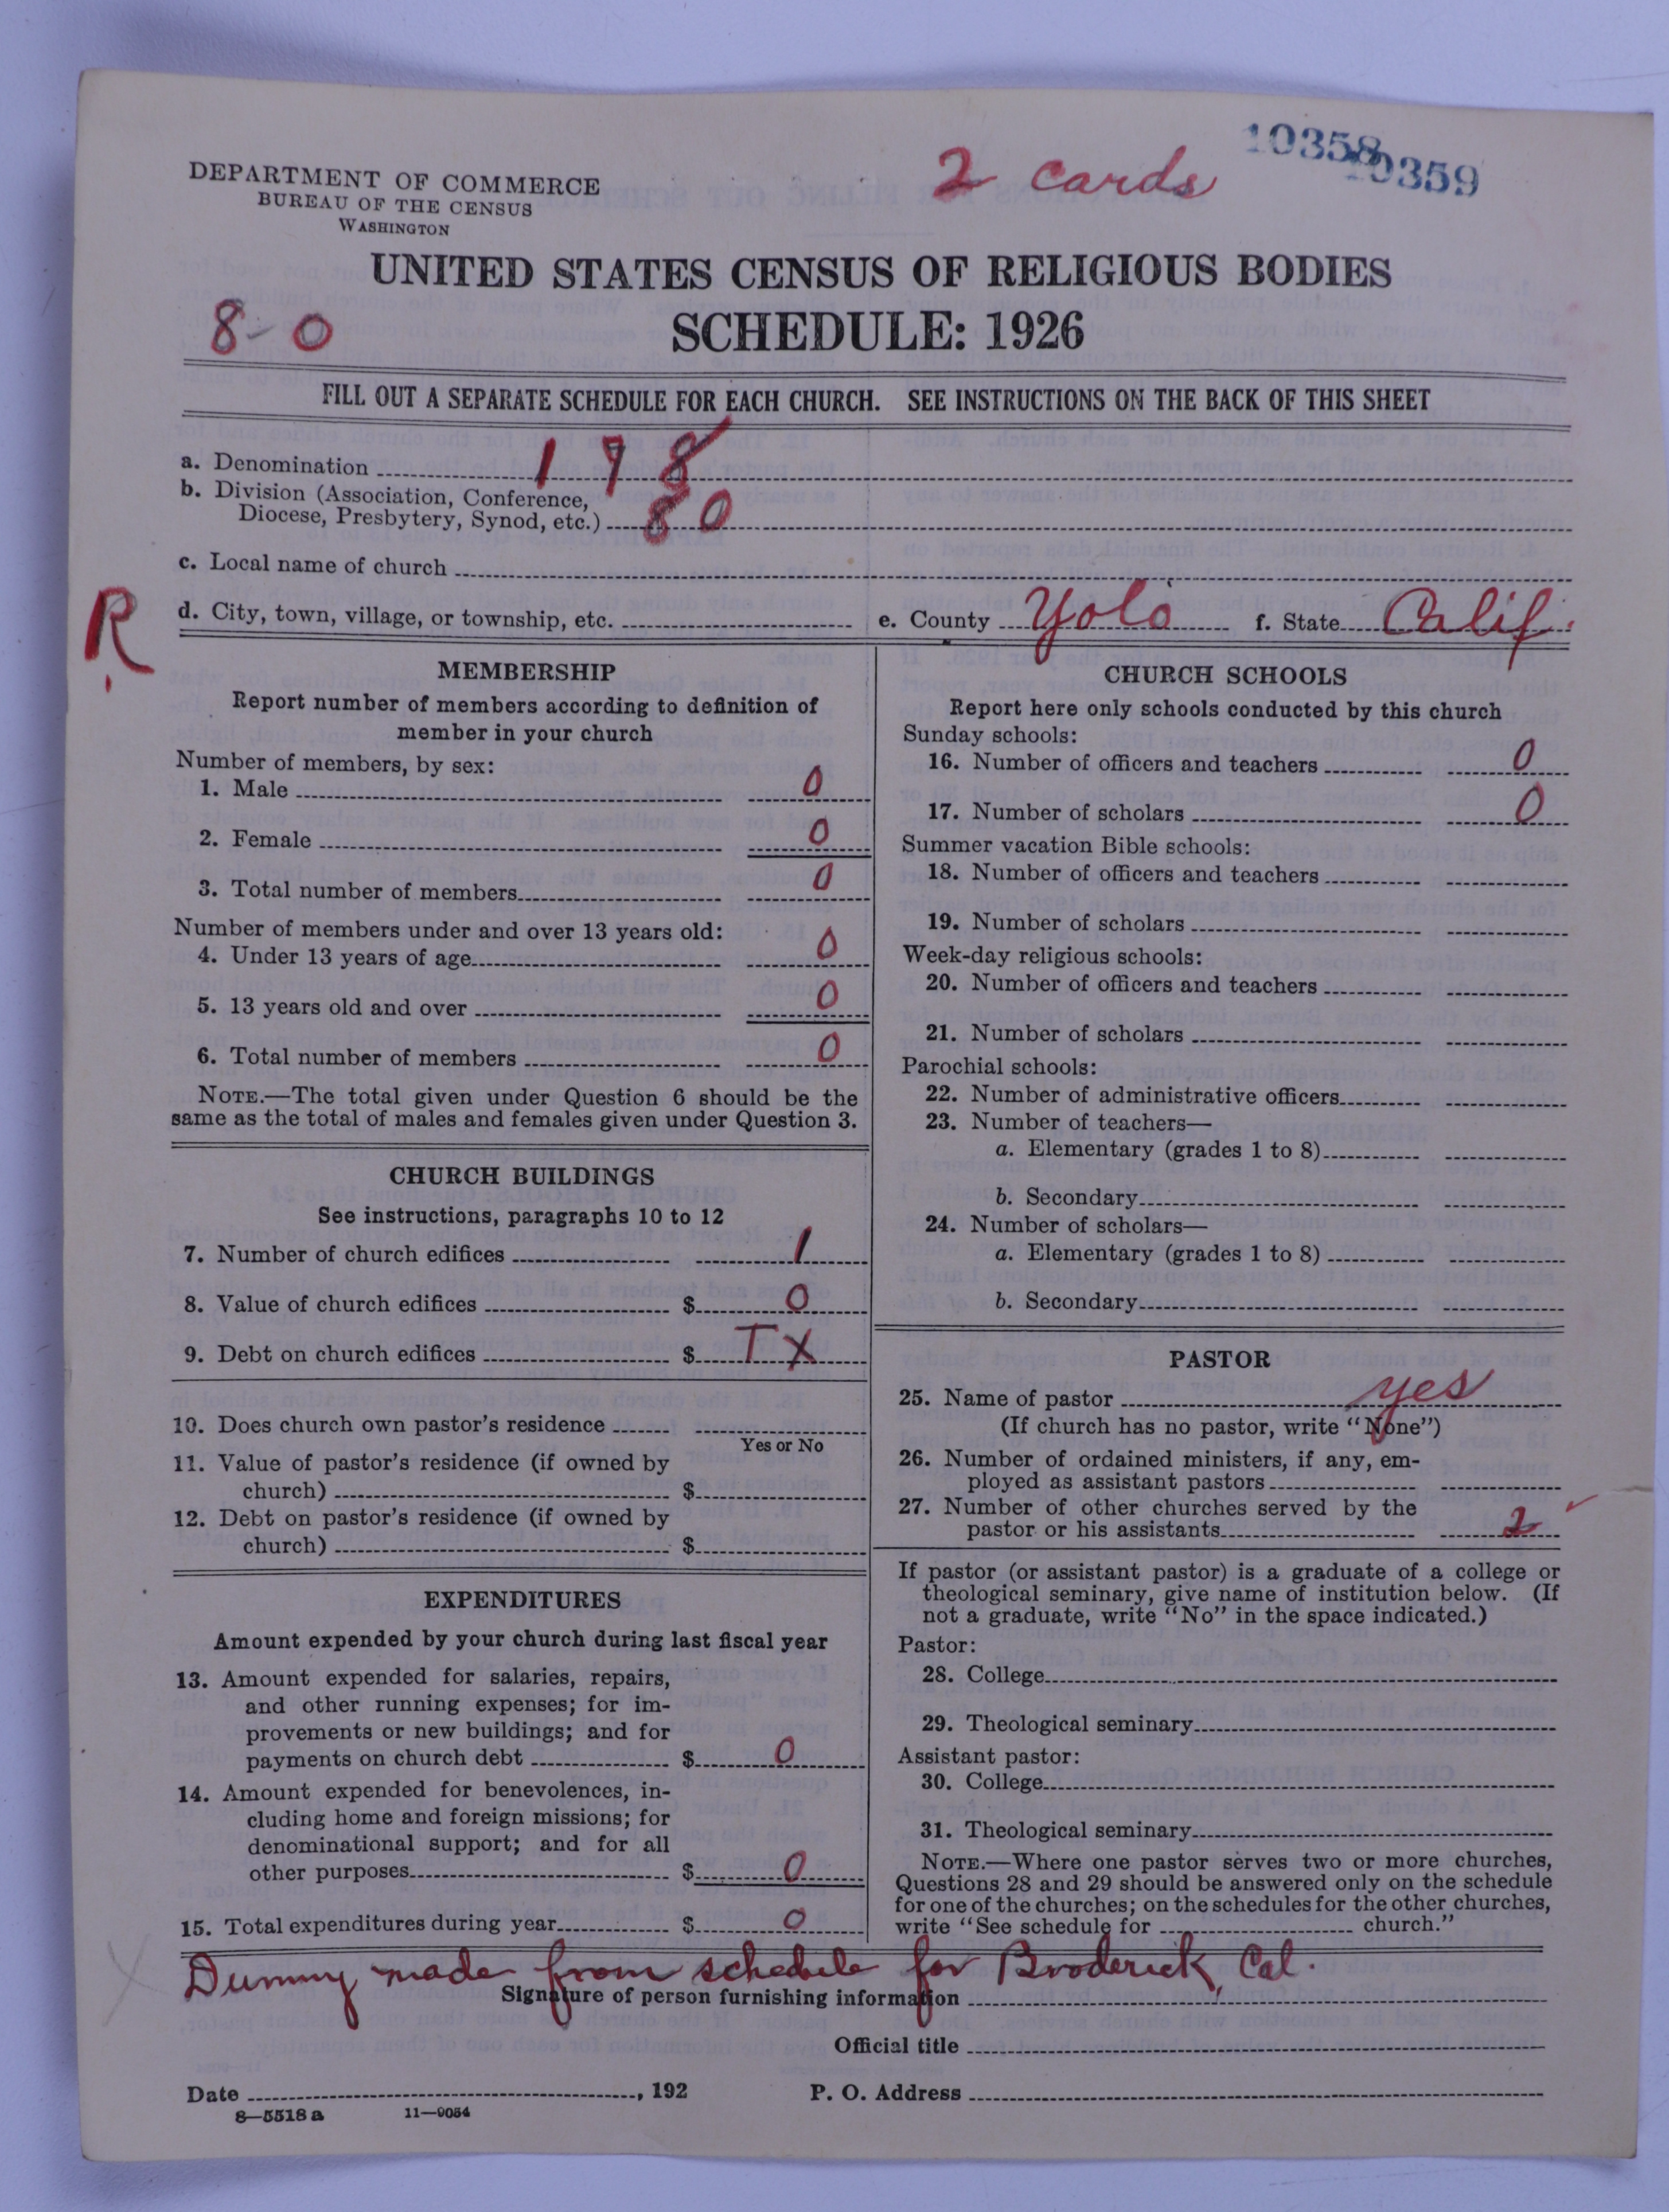 10358
10359
2 cards
DEPARTMENT OF COMMERCE
BUREAU OF THE CENSUS
WASHINGTON
UNITED STATES CENSUS OF RELIGIOUS BODIES
8-0
SCHEDULE: 1926
FILL OUT A SEPARATE SCHEDULE FOR EACH CHURCH. SEE INSTRUCTIONS ON THE BACK OF THIS SHEET
a. Denomination 1 9 8
b. Division (Association, Conference,
Diocese, Presbytery, Synod, etc.) 80
c. Local name of church
R
d. City, town, village, or township, etc. e. County Yolo f. State Calif.
MEMBERSHIP
Report number of members according to definition of
member in your church
Number of members, by sex:
1. Male 0
2. Female 0
3. Total number of members 0
Number of members under and over 13 years old:
4. Under 13 years of age 0
5. 13 years old and over 0
6. Total number of members 0
NOTE.—The total given under Question 6 should be the
same as the total of males and females given under Question 3.
CHURCH BUILDINGS
See instructions, paragraphs 10 to 12
7. Number of church edifices 1
8. Value of church edifices $ 0
9. Debt on church edifices $ TX
10. Does church own pastor's residence
Yes or No
11. Value of pastor's residence (if owned by
church) $
12. Debt on pastor's residence (if owned by
church) $
EXPENDITURES
Amount expended by your church during last fiscal year
13. Amount expended for salaries, repairs,
and other running expenses; for im-
provements or new buildings; and for
payments on church debt $ 0
14. Amount expended for benevolences, in-
cluding home and foreign missions; for
denominational support; and for all
other purposes $ 0
15. Total expenditures during year $ 0
CHURCH SCHOOLS
Report here only schools conducted by this church
Sunday schools:
16. Number of officers and teachers 0
17. Number of scholars 0
Summer vacation Bible schools:
18. Number of officers and teachers
19. Number of scholars
Week-day religious schools:
20. Number of officers and teachers
21. Number of scholars
Parochial schools:
22. Number of administrative officers
23. Number of teachers—
a. Elementary (grades 1 to 8)
b. Secondary
24. Number of scholars—
a. Elementary (grades 1 to 8)
b. Secondary
PASTOR
25. Name of pastor yes
(If church has no pastor, write "None")
26. Number of ordained ministers, if any, em-
ployed as assistant pastors
27. Number of other churches served by the
pastor or his assistants 2
If pastor (or assistant pastor) is a graduate of a college or
theological seminary, give name of institution below. (If
not a graduate, write "No" in the space indicated.)
Pastor:
28. College
29. Theological seminary
Assistant pastor:
30. College
31. Theological seminary
NOTE.—Where one pastor serves two or more churches,
Questions 28 and 29 should be answered only on the schedule
for one of the churches; on the schedules for the other churches,
write "See schedule for church."
Dummy made from schedule for Broderick, Cal.
Signature of person furnishing information
Official title
Date , 192 P. O. Address
8—5518 a 11—9054